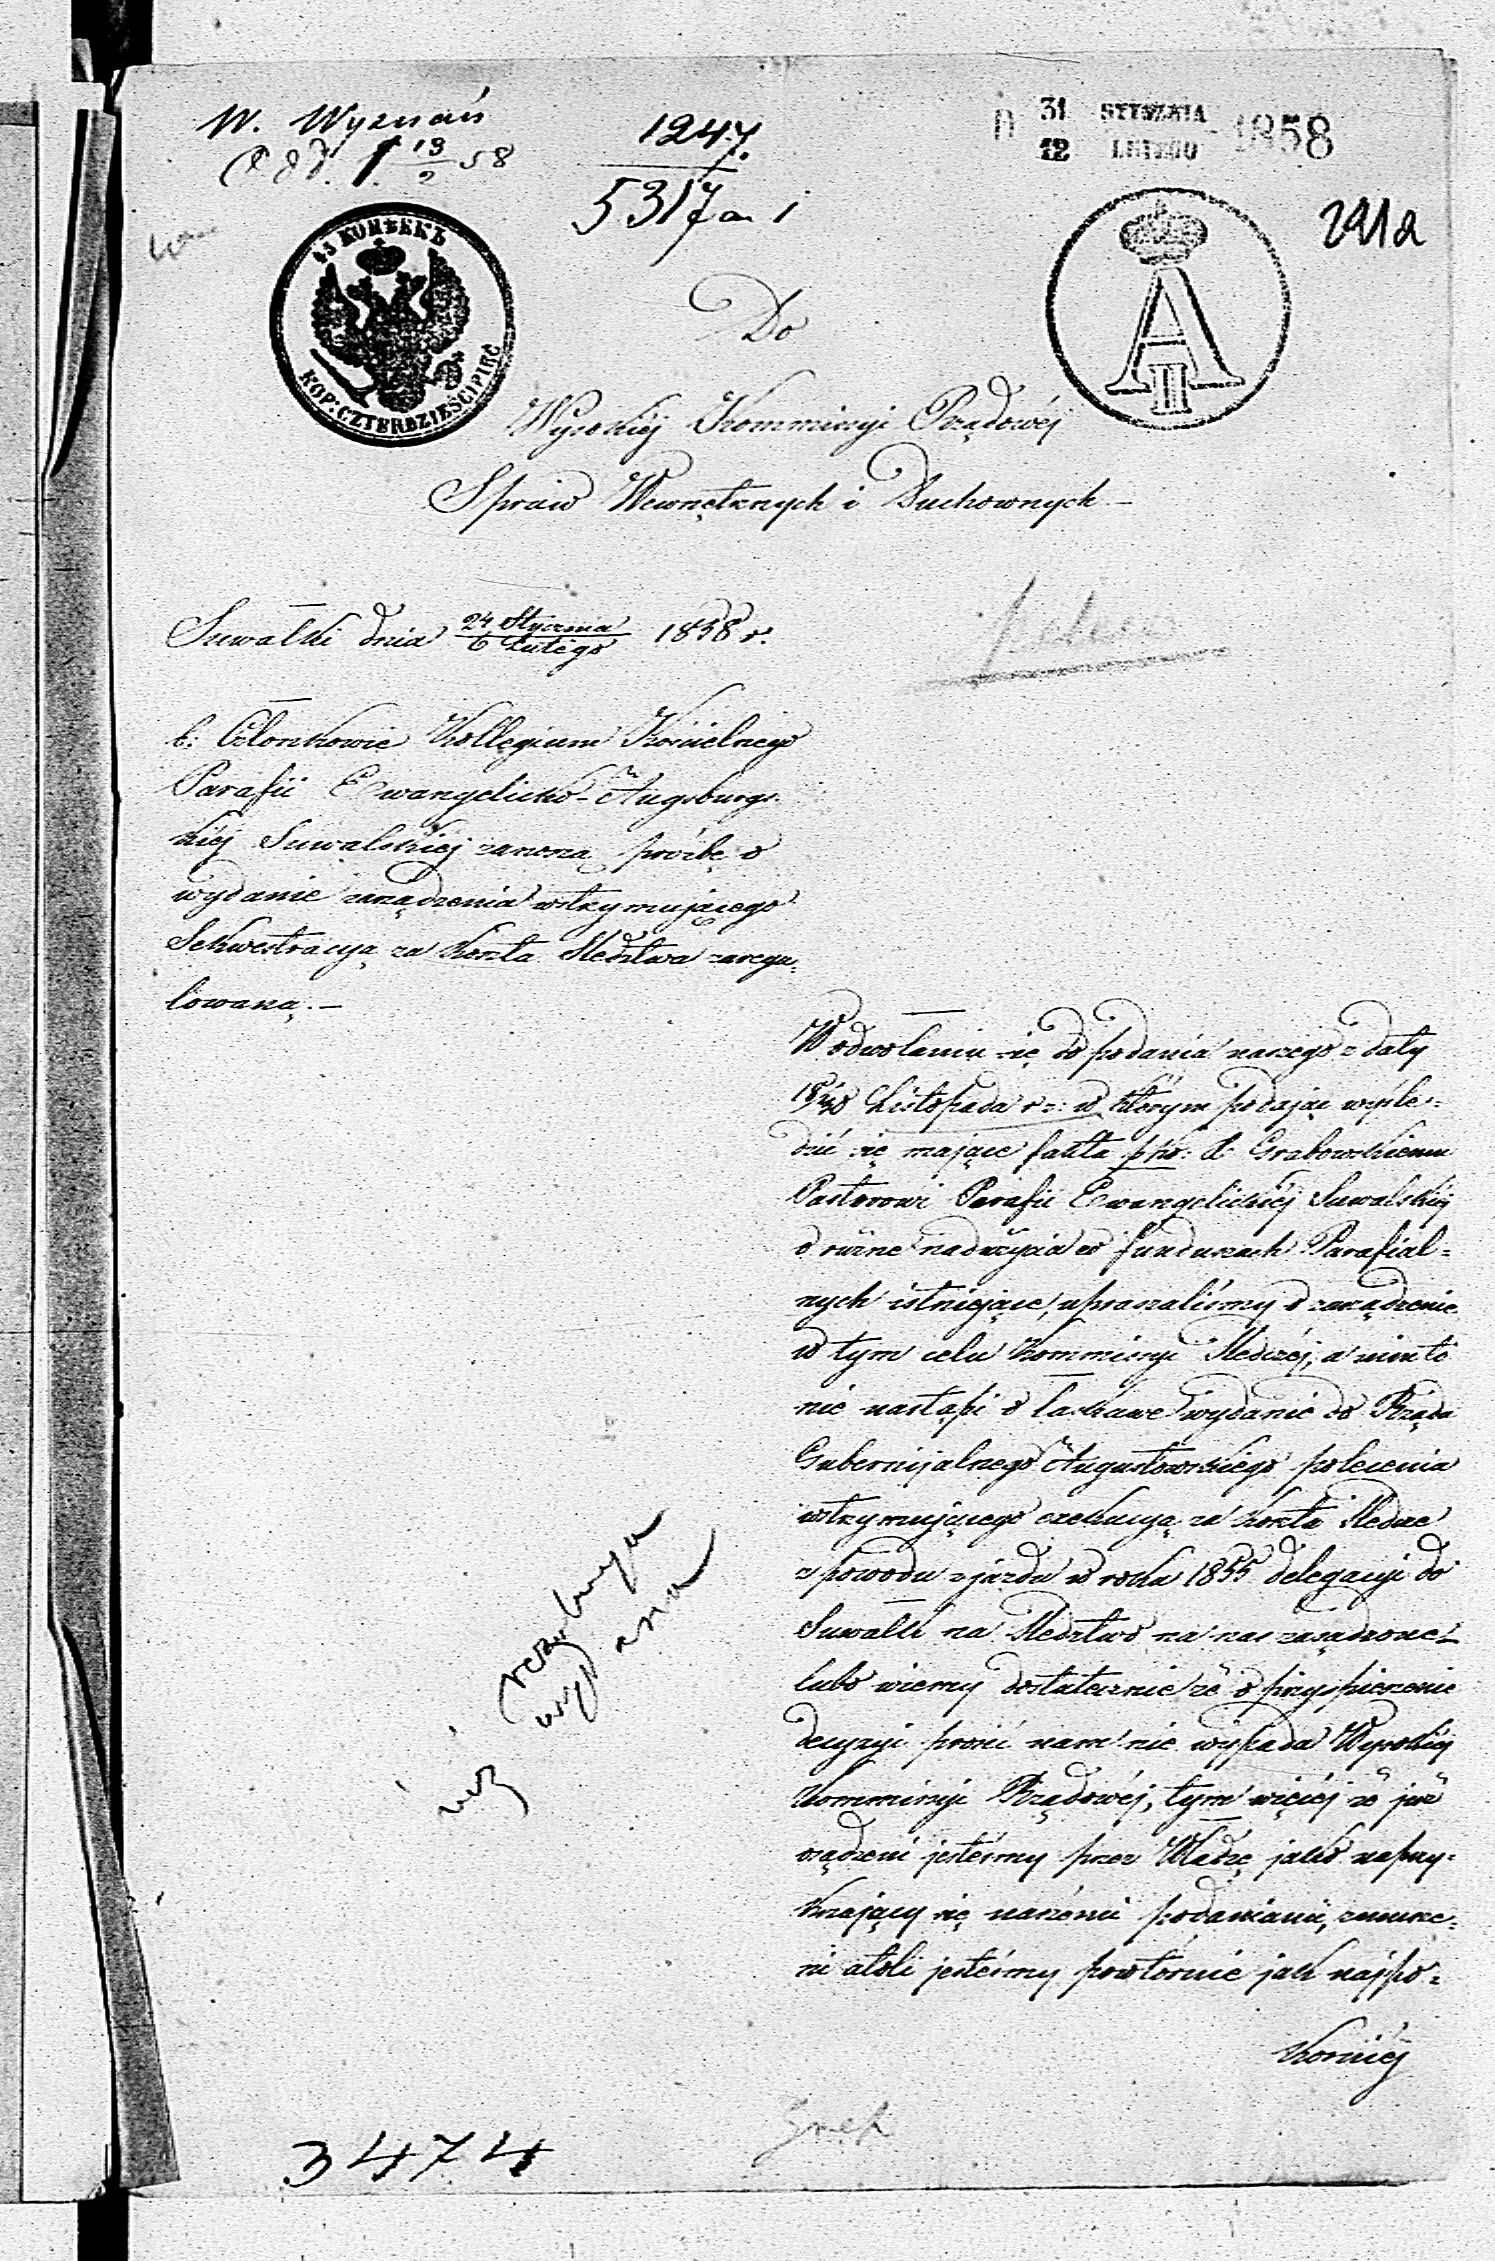 W. Wyznań
1247
5317 a. 1
D 31 STYCZNIA 1858
12 LUTEGO
13/2 58
291a
45 КОПѢЕКЪ
KOP: CZTERDZIEŚCI PIĘĆ
A II
Do
Wysokiéj Kommissyi Rządowéj
Spraw Wewnętrznych i Duchownych
Suwałki dnia 24 Stycznia / 6 Lutego 1858 r.
b: Członkowie Kollegium Kościelnego
Parafii Ewangelicko-Augsburgs-
kiéj Suwalskiéj zanoszą prośbę o
wydanie zarządzenia wstrzymującego
Sekwestracyą za koszta Śledztwa zaregu-
lowaną. —
W odwołaniu się do podania naszego z daty
18/30 Listopada r z: w którym podając wyśle-
dzić się mające fakta pko: X Grabowskiemu
Pastorowi Parafii Ewangelickiéj Suwalskiéj
o różne nadużycia w funduszach Parafial=
nych istniejące, upraszaliśmy o zarządzenie
w tym celu Kommissyi Śledczéj, a nim to
nie nastąpi o łaskawe wydanie do Rządu
Gubernijalnego Augustowskiego polecenia
wstrzymującego exekucyą za koszta Śledcze
z powodu zjazdu w roku 1855 delegacyi do
Suwałk na Śledztwo na nas zasądzone
lubo wiemy dostatecznie że o przyspieszenie
decyzyi prosić nam nie wypada Wysokiéj
Kommissyi Rządowéj, tym więcéj że już
osądzeni jesteśmy przez Władzę jako naprzy-
krzający się naszémi podaniami, zmusze-
ni atoli jesteśmy powtórnie jak najpo=
korniéj
już rezolucya
wydana
3474